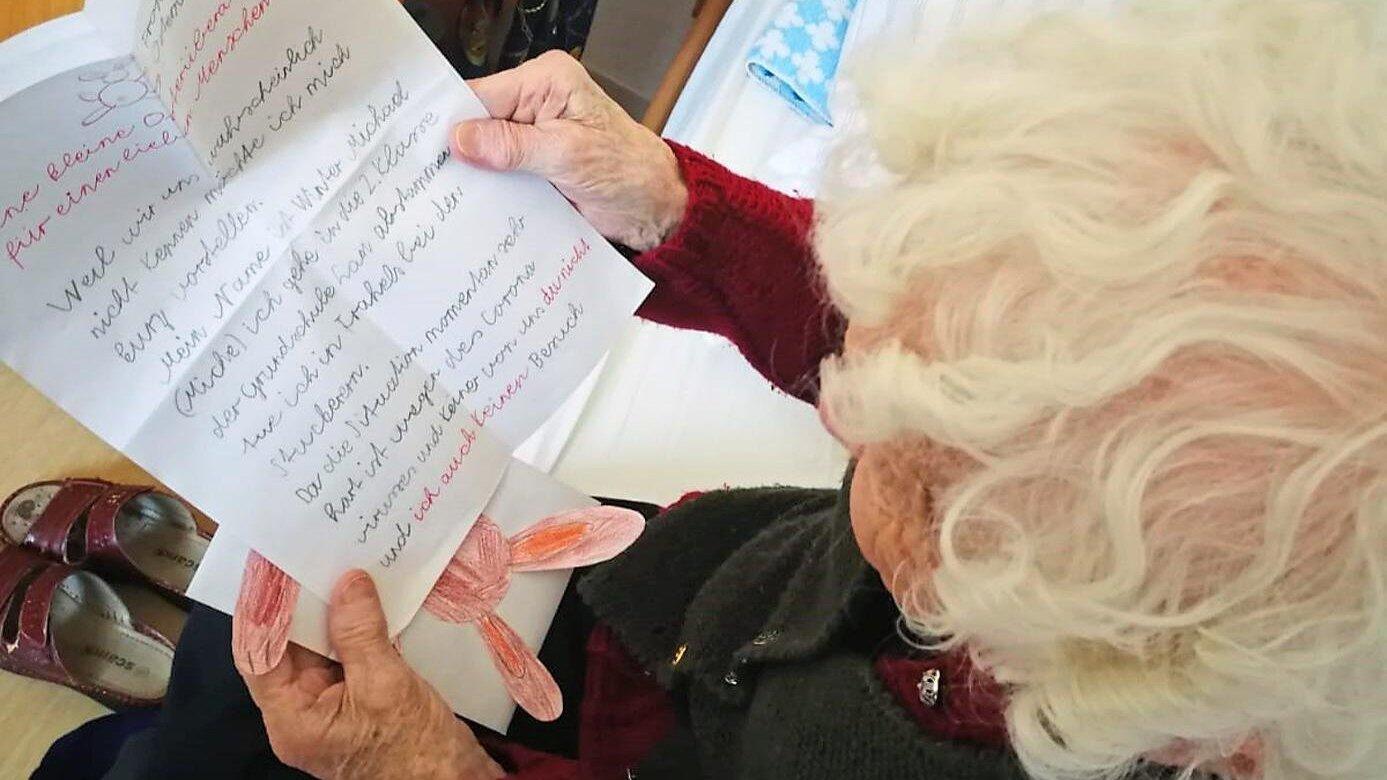 ne kleine O
für einen lieb n Menschen
Weil wir uns wahrscheinlich
nicht kennen möchte ich mich
kurz vorstellen.
Mein Name ist Winter Michael
ich gehe in die 2. Klasse
der Grundschule han abstammen
tue ich in bei der
Da die Situation momentan sehr
hart ist wegen des Corona
viruses und Keiner von uns
und ich auch keinen Besuch